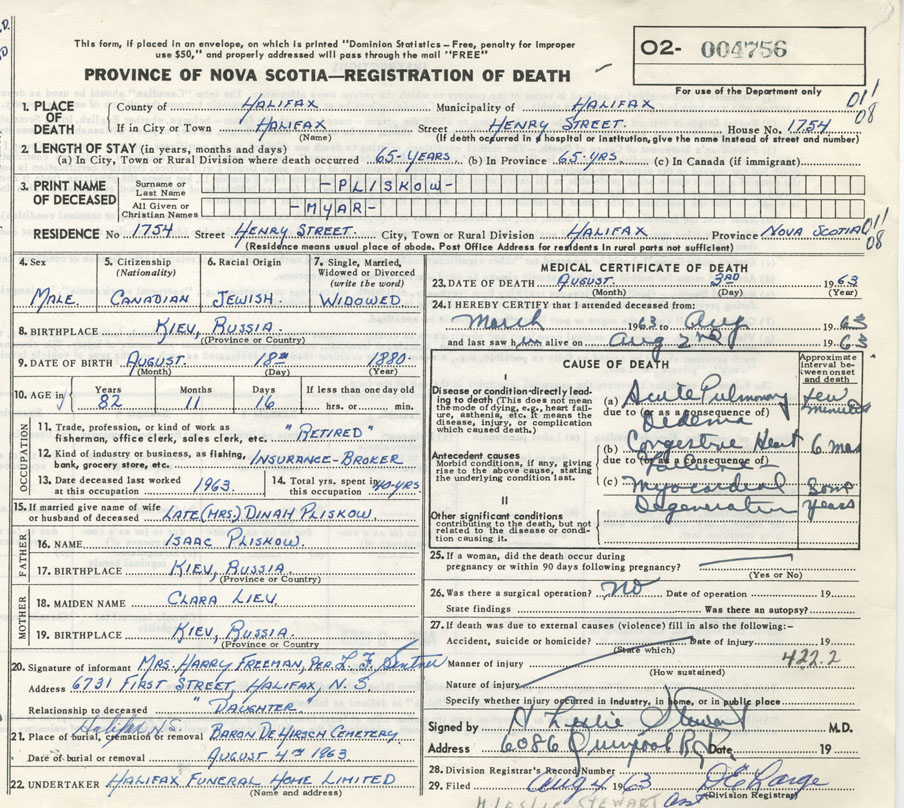 This form, if placed in an envelope, on which is printed "Dominion Statistics – Free, penalty for improper
use $50," and properly addressed will pass through the mail "FREE"
O2- 004756
PROVINCE OF NOVA SCOTIA—REGISTRATION OF DEATH
For use of the Department only
1. PLACE OF DEATH
County of HALIFAX Municipality of HALIFAX
011
08
If in City or Town HALIFAX Street HENRY STREET. House No. 1754
(Name) (If death occurred in a hospital or institution, give the name instead of street and number)
2. LENGTH OF STAY (in years, months and days)
(a) In City, Town or Rural Division where death occurred 65-YEARS. (b) In Province 65-YRS. (c) In Canada (if immigrant)
3. PRINT NAME OF DECEASED
Surname or Last Name -PLISKOW-
All Given or Christian Names -MYAR-
RESIDENCE No 1754 Street HENRY STREET. City, Town or Rural Division HALIFAX Province NOVA SCOTIA
011
08
(Residence means usual place of abode. Post Office Address for residents in rural parts not sufficient)
4. Sex
MALE.
5. Citizenship
(Nationality)
CANADIAN
6. Racial Origin
JEWISH.
7. Single, Married,
Widowed or Divorced
(write the word)
WIDOWED
8. BIRTHPLACE KIEV, RUSSIA.
(Province or Country)
9. DATE OF BIRTH AUGUST. 18TH 1880.
(Month) (Day) (Year)
10. AGE in
Years Months Days If less than one day
82 11 16 hrs. or min.
OCCUPATION
11. Trade, profession, or kind of work as
fisherman, office clerk, sales clerk, etc. "RETIRED"
12. Kind of industry or business, as fishing,
bank, grocery store, etc. INSURANCE-BROKER
13. Date deceased last worked
at this occupation 1963.
14. Total yrs. spent in
this occupation 40-YRS
15. If married give name of wife
or husband of deceased LATE (MRS.) DINAH PLISKOW.
FATHER
16. NAME ISAAC PLISKOW.
17. BIRTHPLACE KIEV, RUSSIA.
(Province or Country)
MOTHER
18. MAIDEN NAME CLARA LIEV.
19. BIRTHPLACE KIEV, RUSSIA.
(Province or Country
20. Signature of informant MRS. HARRY FREEMAN, PER L. F.
Address 6731 FIRST STREET, HALIFAX, N.S.
Relationship to deceased "DAUGHTER"
Halifax N.S.
21. Place of burial, cremation or removal BARON DE HIRSCH CEMETERY
Date of burial or removal AUGUST 4TH 1963.
22. UNDERTAKER HALIFAX FUNERAL HOME LIMITED
(Name and address)
MEDICAL CERTIFICATE OF DEATH
23. DATE OF DEATH AUGUST. 3RD 1963
(Month) (Day) (Year)
24. I HEREBY CERTIFY that I attended deceased from:
March 1963 to Aug 1963
and last saw him alive on Aug 2nd 1963
CAUSE OF DEATH
Approximate
interval be-
tween onset
and death
I
Disease or condition directly lead-
ing to death (This does not mean
the mode of dying, e.g., heart fail-
ure, asthenia, etc. It means the
disease, injury, or complication
which caused death.)
(a) Acute Pulmonary few minutes
due to (or as a consequence of)
Oedema
Antecedent causes
Morbid conditions, if any, giving
rise to the above cause, stating
the underlying condition last.
(b) Congestive Heart 6 mos
due to (or as a consequence of)
Failure
(c) Myocardial Some years
Degeneration
II
Other significant conditions
contributing to the death, but not
related to the disease or condi-
tion causing it.
25. If a woman, did the death occur during
pregnancy or within 90 days following pregnancy?
(Yes or No)
26. Was there a surgical operation? no Date of operation 19
State findings Was there an autopsy?
27. If death was due to external causes (violence) fill in also the following:-
Accident, suicide or homicide? Date of injury 19
(State which)
422.2
Manner of injury
(How sustained)
Nature of injury
Specify whether injury occurred in Industry, in home, or in public place
Signed by H Leslie Stewart M.D.
Address 6086 Quinpool Rd. Date 19
28. Division Registrar's Record Number
29. Filed Aug 4 1963
(Division Registrar)
H LESLIE STEWART